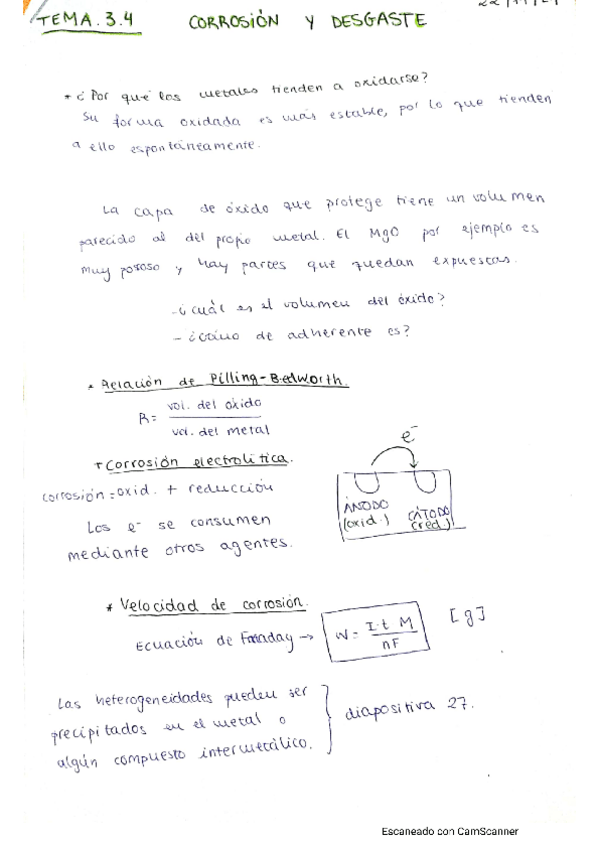 TEMA. 3.4 CORROSIÓN Y DESGASTE
* ¿Por qué los metales tienden a oxidarse?
Su forma oxidada es más estable, por lo que tienden
a ello espontáneamente.
La capa de óxido que protege tiene un volumen
parecido al del propio metal. El MgO por ejemplo es
muy poroso y hay partes que quedan expuestas.
- ¿cuál es el volumen del óxido?
- ¿cómo de adherente es?
* Relación de Pilling-Bedworth.
R= vol. del óxido
vol. del metal
* Corrosión electrolítica.
corrosión = oxid. + reducción
Los e- se consumen
mediante otros agentes.
e-
ÁNODO
(oxid.)
CÁTODO
(red.)
* Velocidad de corrosión.
Ecuación de Faraday → W = I·t M / nF [g]
Las heterogeneidades pueden ser
precipitados en el metal o
algún compuesto intermetálico.
diapositiva 27.
Escaneado con CamScanner